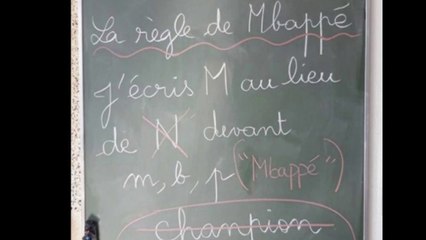 La règle de Mbappé
J'écris M au lieu
de N devant
m, b, p ("Mbappé")
chanpion